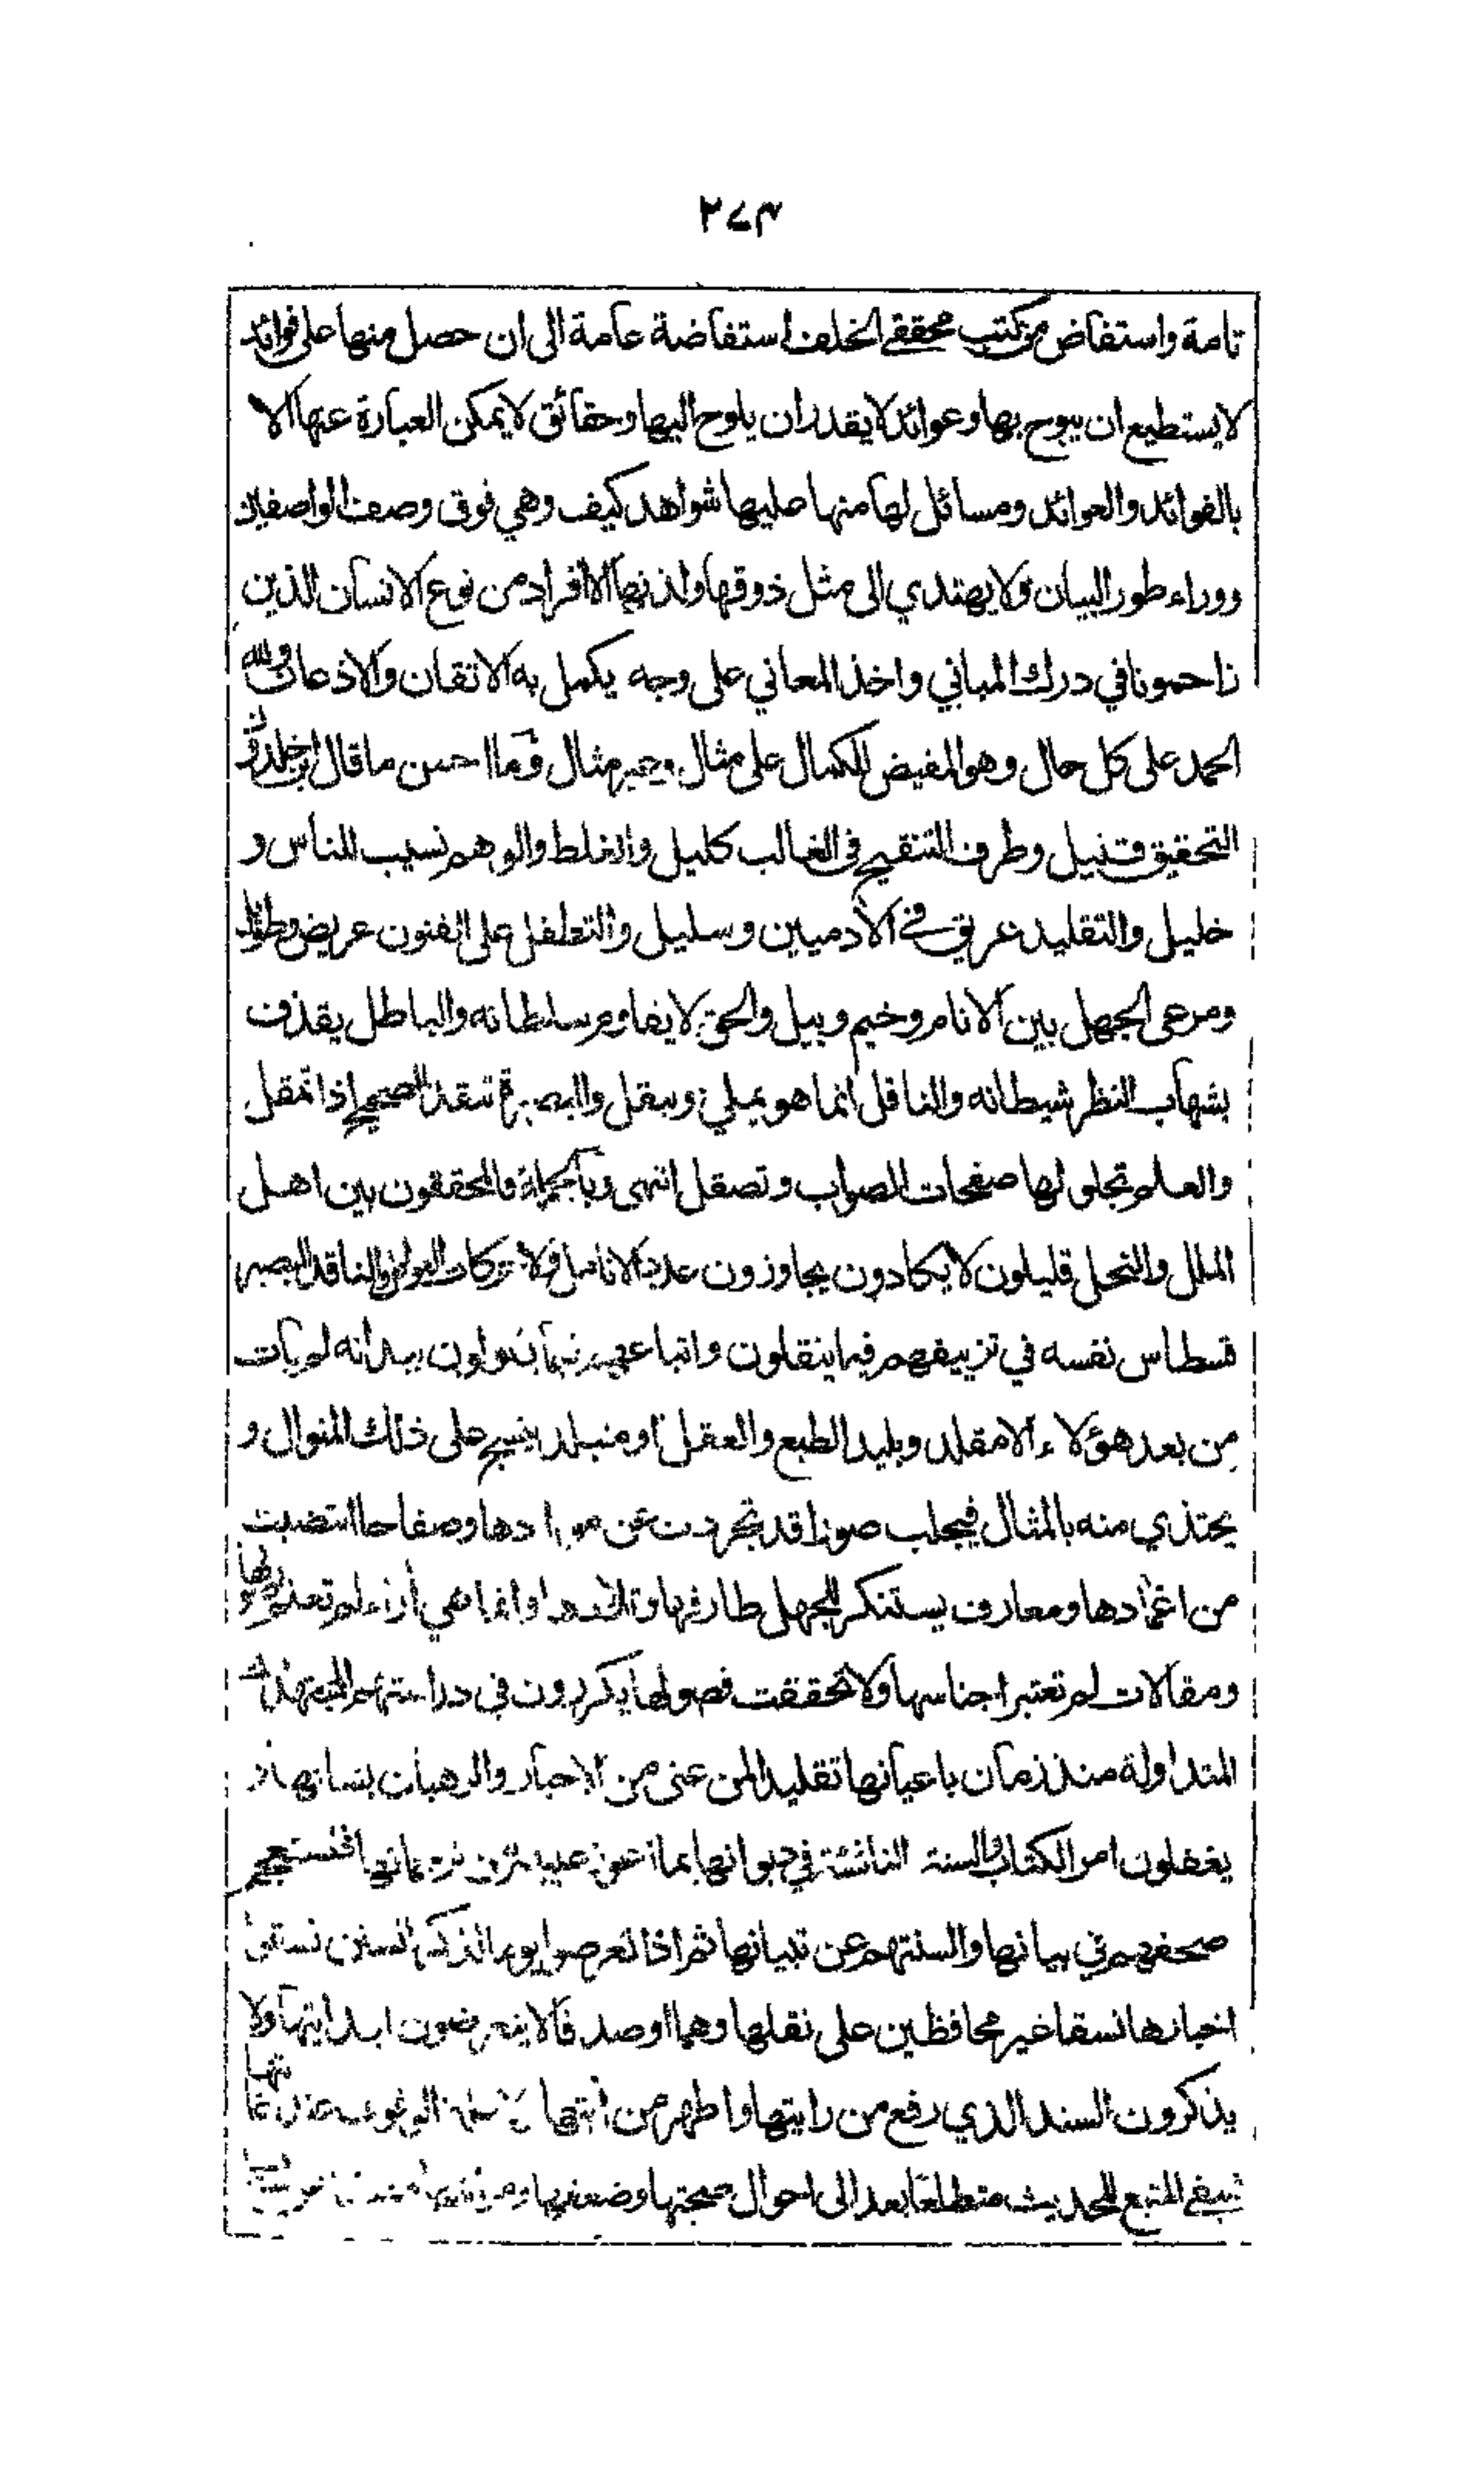 ٢٧٣
تامة واستفاض من كتب محققي الخلف استفاضة عامة الى ان حصل منها على فوائد
لا يستطيع ان يبوح بها وعوائد لا يقدر ان يلوح اليها وحقائق لا يمكن العبارة عنها الا
بالفوائد والعوائد ومسائل لها منها عليها شواهد كيف وهي فوق وصف الواصفين
ووراء طور البيان ولا يهتدي الى مثل ذوقها ولذتها الا افراد من نوع الانسان الذين
زاحمونا في درك المباني واخذ المعاني على وجه يكمل به الاتقان والاذعان ولله
الحمد على كل حال وهو المفيض للكمال على مثال وغير مثال وما احسن ما قال ابن خلدون
التحقيق قليل وطرف التنقيح في الغالب كليل والغلط والوهم نسيب للناس و
خليل والتقليد عريق في الآدميين وسليل والتطفل على الفنون عريض وطويل
ومرعى الجهل بين الانام وخيم وبيل والحق لا يقاوم سلطانه والباطل يقذف
بشهاب النظر شيطانه والناقل انما هو يملي وينقل والبصيرة تنقد الصحيح اذا تمقل
والعلم يجلو لها صفحات الصواب وتصقل انتهى وبالجملة فالمحققون بين اهل
الملل والنحل قليلون لا يكادون يجاوزون عدد الانامل ولا حركات العوامل والناقد البصير
قسطاس نفسه في تزييفهم فيما ينقلون واتباعهم فيما يقولون بيد انه لم يأت
من بعد هؤلاء الا مقلد وبليد الطبع والعقل او متبلد ينسج على ذلك المنوال و
يحتذي منه بالمثال فيجلب صورا قد تجردت عن موادها وصفاحا انتضيت
من اغمادها ومعارف يستنكر للجهل طارفها وتلادها وانما هي آراء لم تعلم اصولها
ومقالات لم تعتبر اجناسها ولا تحققت فصولها يكررون في دراستهم
المتداولة منذ زمان باعيانها تقليدا لمن عنى من الاحبار والرهبان بشانها و
يغفلون امر الكتاب والسنة الناشئة في ديوانها بما اعوز عليهم من ترجمانها فتستعجم
صحفهم في بيانها والسنتهم عن تبيانها ثم اذا تعرضوا يوما لذكر السنن نسقوا
اخبارها نسقا غير محافظين على نقلها وهما او صدقا لا يتعرضون لبدايتها ولا
يذكرون السند الذي رفع من رايتها واظهر من آيتها
فيبقى المتبع للحديث متطلعا بعد الى احوال صحتها وضعفها